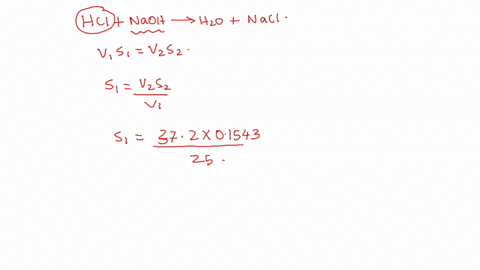 HCl + NaOH → H2O + NaCl.
V1 S1 = V2 S2.
S1 = V2 S2 / V1
S1 = 37.2 × 0.1543 / 25.